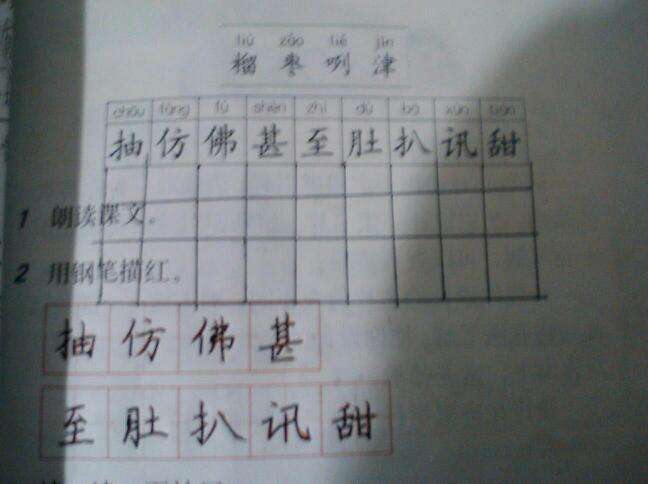 liú zǎo liě jīn
榴 枣 咧 津
chōu fǎng fú shèn zhì dù bā xùn tián
抽 仿 佛 甚 至 肚 扒 讯 甜
1 朗读课文。
2 用钢笔描红。
抽 仿 佛 甚
至 肚 扒 讯 甜